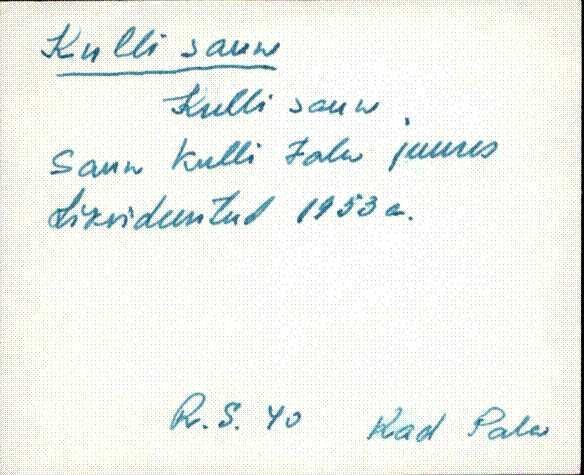 Kulli saun
Kulli saun
Saun Kulli talu juures
Likvideeritud 1953 a.
R.S. 40 Kad Palu